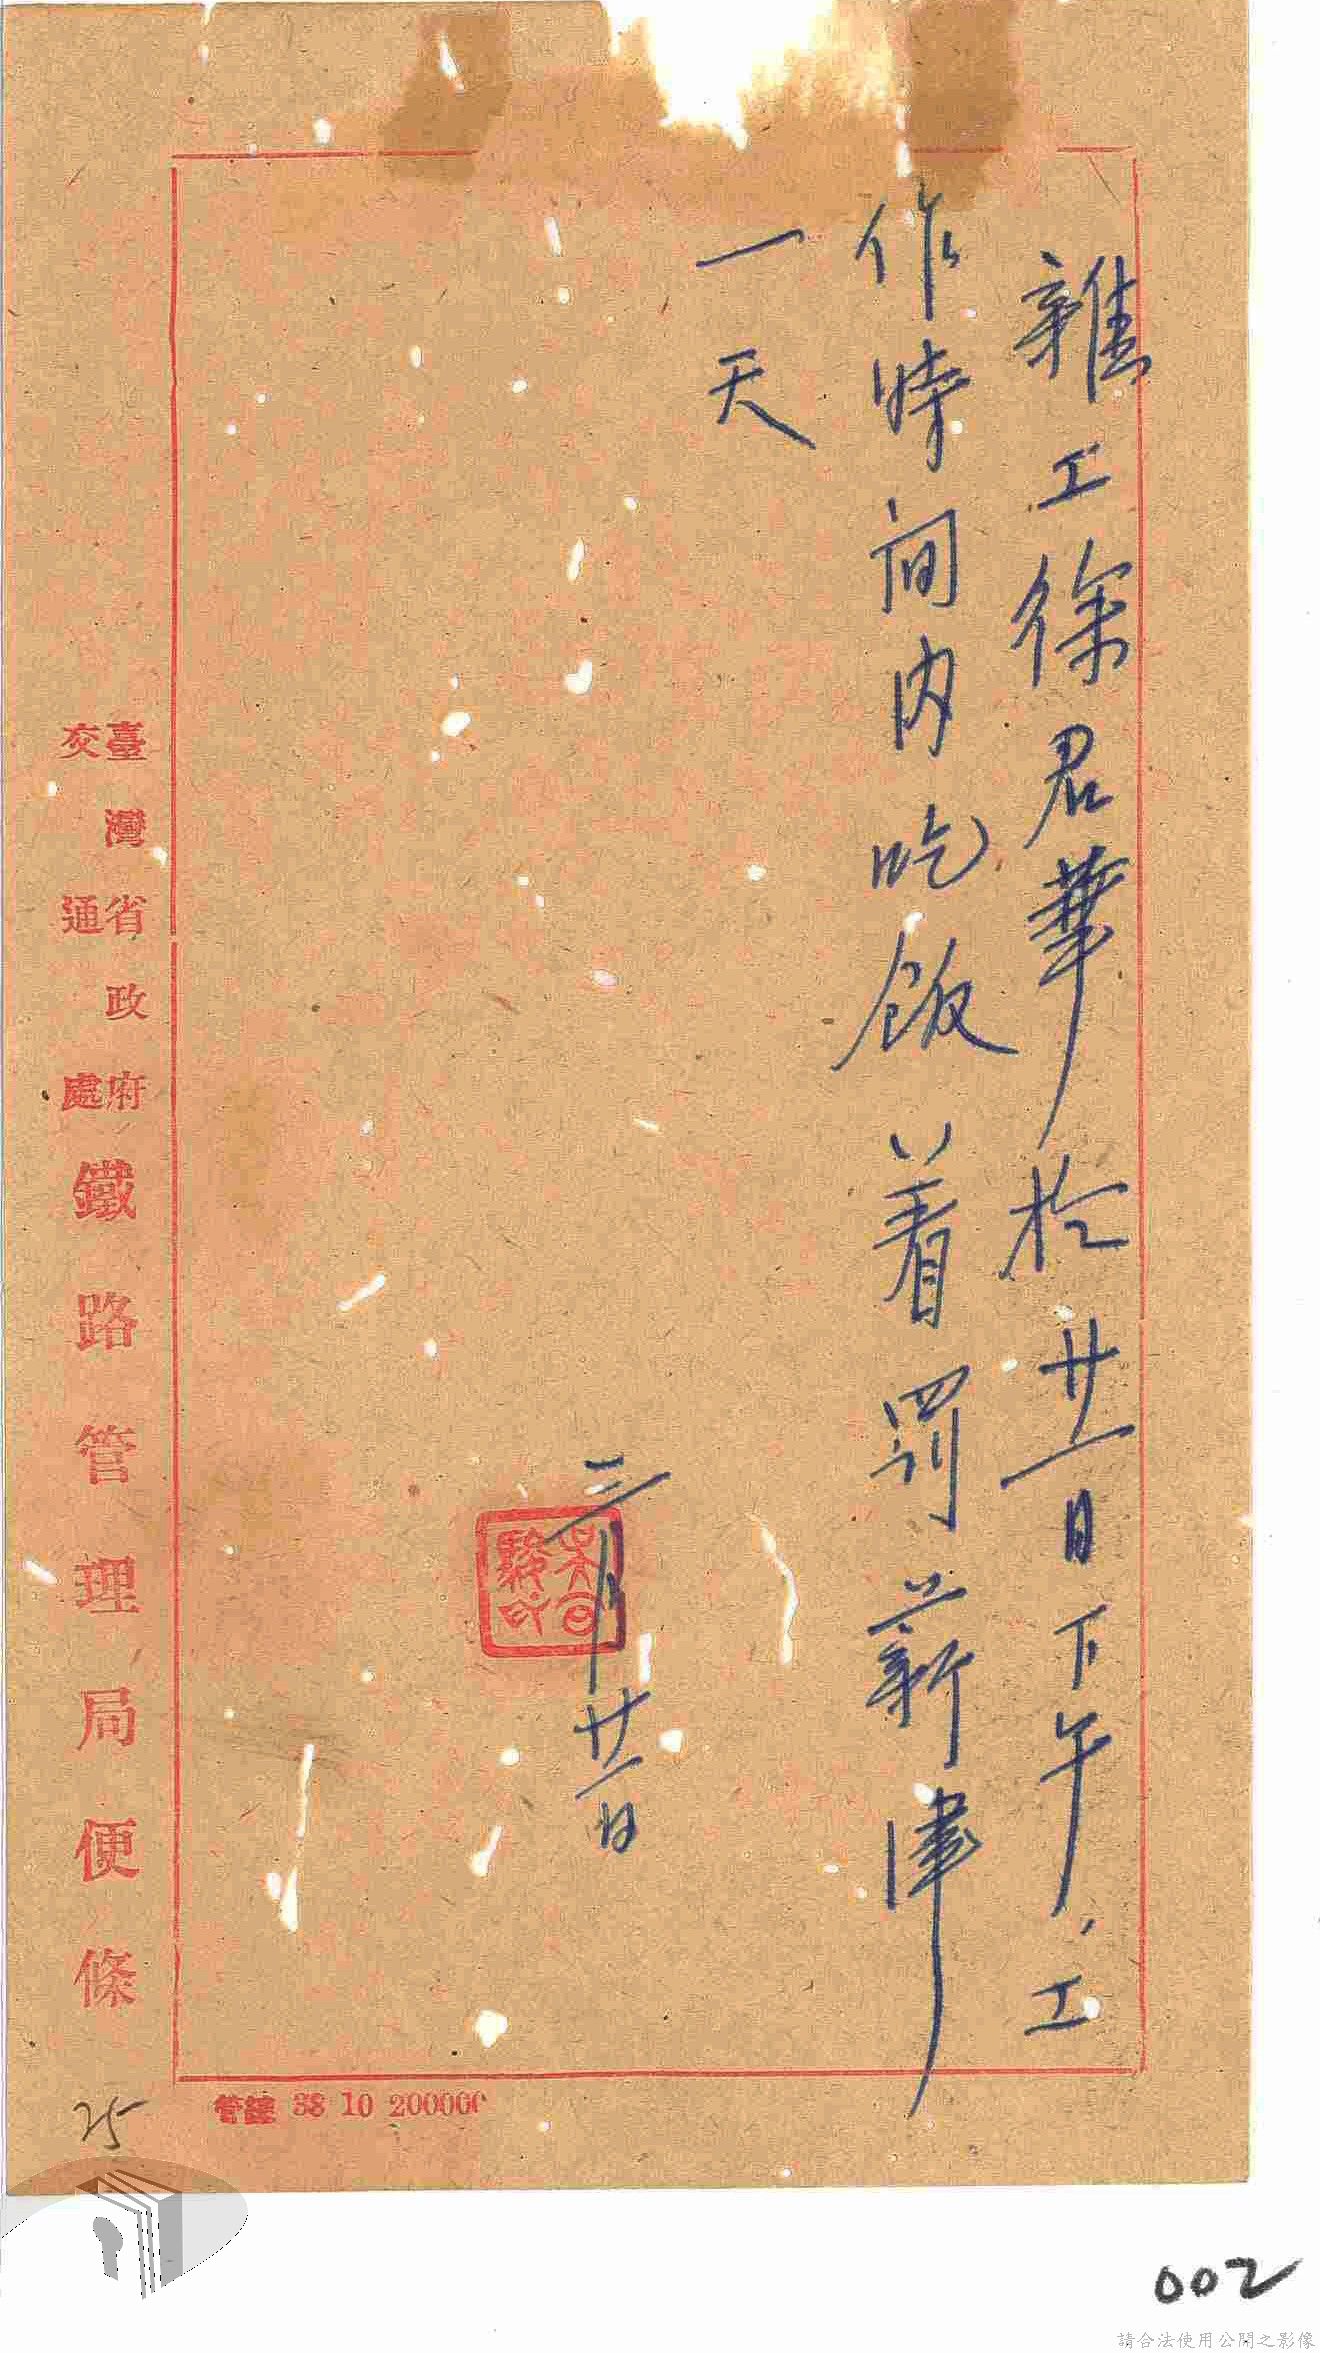 雜工徐君華於廿一日下午工
作時間內吃飯着罰薪津
一天
三月廿一日
臺灣省政府
交通處
鐵路管理局便條
管鐘 38 10 200000
25
002
請合法使用公開之影像